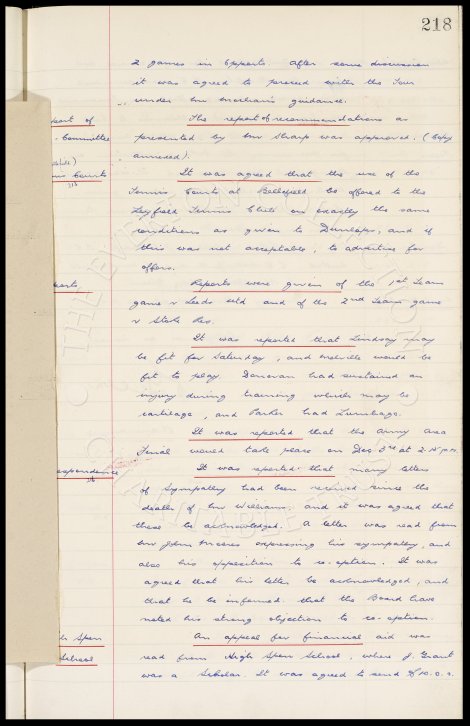 218
2 games in Egypt. After some discussion
it was agreed to proceed with the Tour
under Mr Mechan's guidance.
port of
Committee
The report of recommendations as
presented by Mr Sharp was approved. (Copy
annexed).
Courts
213
It was agreed that the use of the
Tennis Courts at Bellefield be offered to the
Leyfield Tennis Club on exactly the same
conditions as given to Dunlops, and if
this was not acceptable, to advertise for
offers.
ports.
Reports were given of the 1st Team
game v Leeds Utd and of the 2nd Team game
v Stoke Res.
It was reported that Lindsay may
be fit for Saturday, and Melville would be
fit to play. Donovan had sustained an
injury during training which may be
cartilage, and Parker had Lumbago.
It was reported that the Army Area
Final would take place on Dec 3rd at 2.15 p.m.
espondence
It was reported that many letters
of sympathy had been received since the
death of Mr Williams; and it was agreed that
these be acknowledged. A letter was read from
Mr John Moores expressing his sympathy, and
also his opposition to co-option. It was
agreed that his letter be acknowledged, and
that he be informed that the Board have
noted his strong objections to co-option.
gh Spen
School
An appeal for financial aid was
read from High Spen School, where J. Grant
was a Scholar. It was agreed to send £10.0.0.